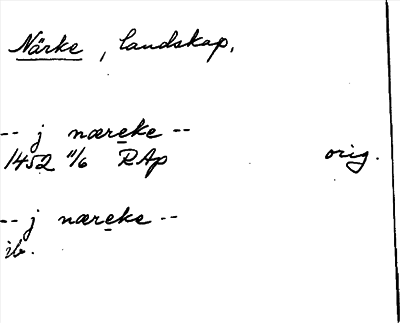 Närke, landskap.
-- j næreke --
1452 11/6 RAp orig.
-- j næreke --
ib.